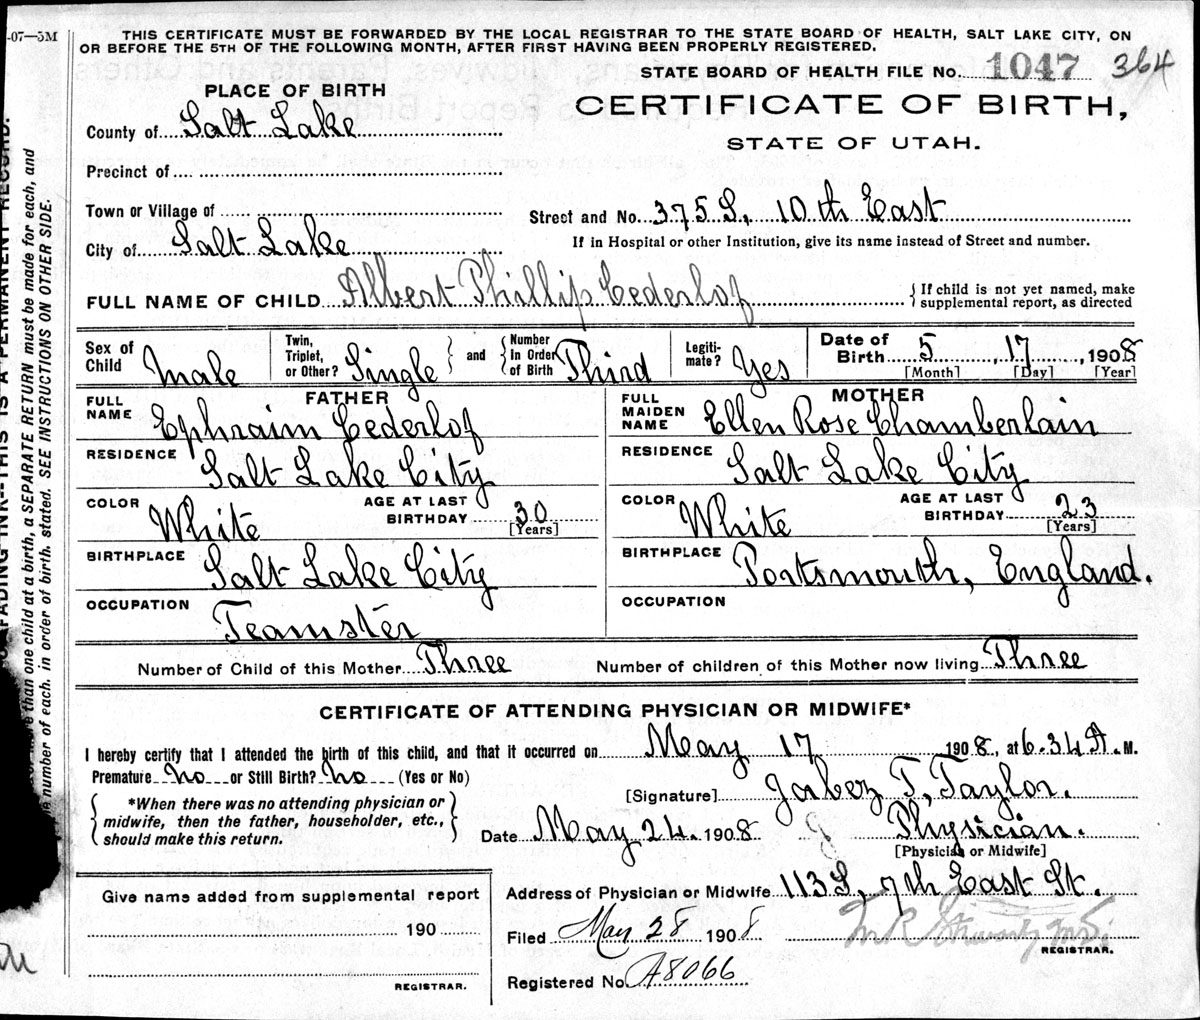 -07—5M
THIS CERTIFICATE MUST BE FORWARDED BY THE LOCAL REGISTRAR TO THE STATE BOARD OF HEALTH, SALT LAKE CITY, ON
OR BEFORE THE 5TH OF THE FOLLOWING MONTH, AFTER FIRST HAVING BEEN PROPERLY REGISTERED.
STATE BOARD OF HEALTH FILE No. 1047 364
PLACE OF BIRTH
CERTIFICATE OF BIRTH,
STATE OF UTAH.
County of Salt Lake
Precinct of
Town or Village of
Street and No. 375 S, 10th East
City of Salt Lake
If in Hospital or other Institution, give its name instead of Street and number.
FULL NAME OF CHILD Albert Phillip Cederlof
If child is not yet named, make
supplemental report, as directed
Sex of Child Male
Twin, Triplet, or Other? Single
and Number In Order of Birth Third
Legiti-mate? Yes
Date of Birth 5, 17, 1908
[Month] [Day] [Year]
FATHER
FULL NAME Ephraim Cederlof
RESIDENCE Salt Lake City
COLOR White AGE AT LAST BIRTHDAY 30 [Years]
BIRTHPLACE Salt Lake City
OCCUPATION Teamster
MOTHER
FULL MAIDEN NAME Ellen Rose Chamberlain
RESIDENCE Salt Lake City
COLOR White AGE AT LAST BIRTHDAY 23 [Years]
BIRTHPLACE Portsmouth, England.
OCCUPATION
Number of Child of this Mother Three Number of children of this Mother now living Three
CERTIFICATE OF ATTENDING PHYSICIAN OR MIDWIFE*
I hereby certify that I attended the birth of this child, and that it occurred on May 17 1908, at 6.34 A. M.
Premature No or Still Birth? No (Yes or No)
*When there was no attending physician or
midwife, then the father, householder, etc.,
should make this return.
[Signature] Jabez T, Taylor.
Date May 24. 1908 Physician.
[Physician or Midwife]
Address of Physician or Midwife 113 S, 7th East St.
Give name added from supplemental report
190
REGISTRAR.
Filed May 28 1908
REGISTRAR.
Registered No. A8066
THIS IS A PERMANENT RECORD.
than one child at a birth, a SEPARATE RETURN must be made for each, and
number of each, in order of birth, stated. SEE INSTRUCTIONS ON OTHER SIDE.